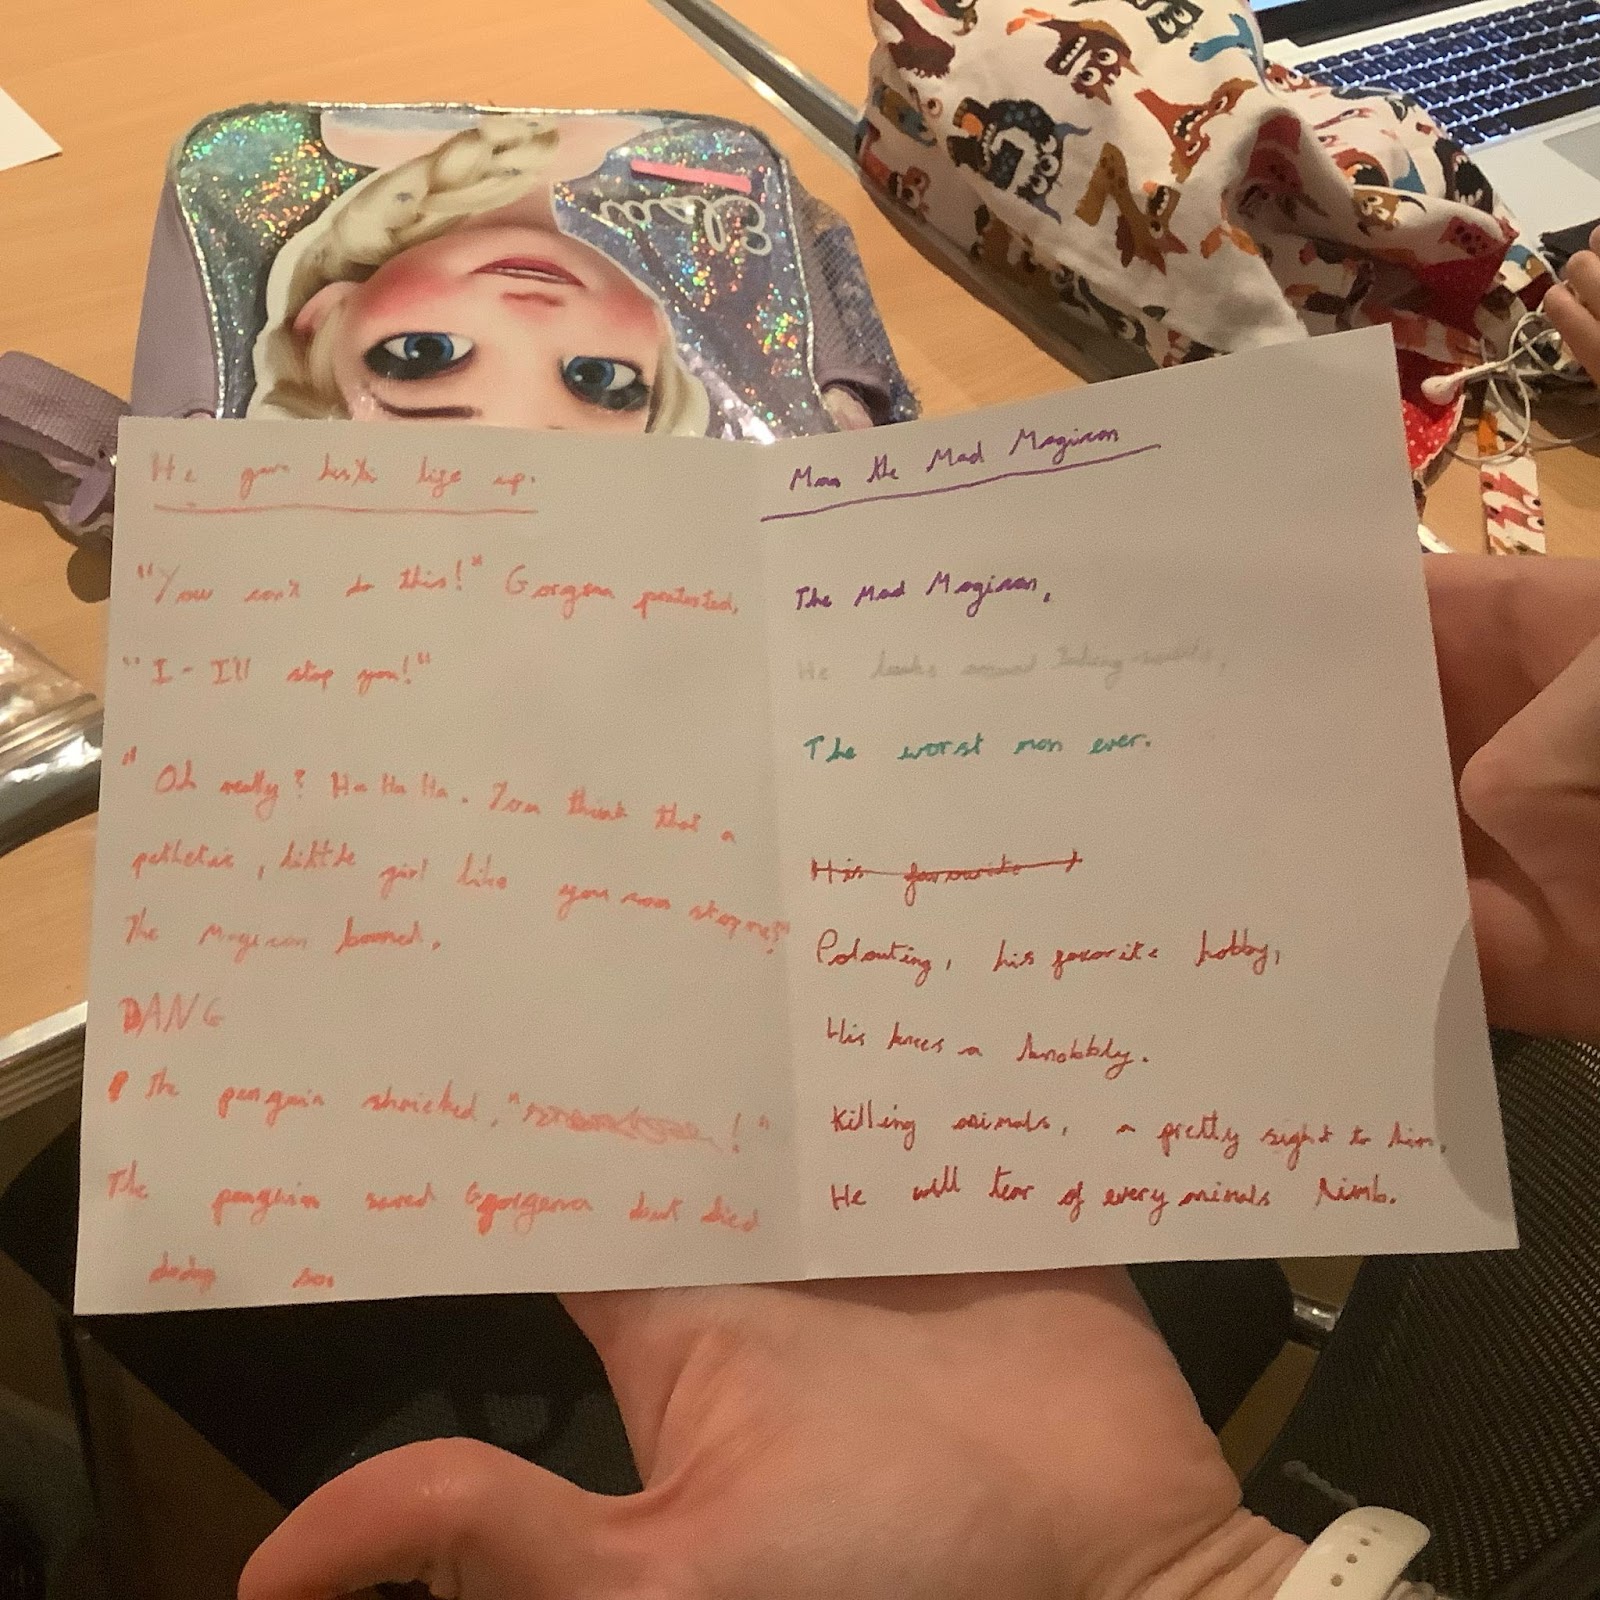 Elsa
He gave his life up.
"You can't do this!" Gorgena protested,
"I - I'll stop you!"
"Oh really? Ha Ha Ha. You think that a
pathetic, little girl like you can stop me?"
The Magican boomed.
DANG
The penguin shrieked, " ! "
The penguin saved Gorgena but died
doing so.
Max the Mad Magican
The Mad Magican,
He looks around
The worst man ever.
His favourite
Polouting, his favorite hobby,
His knees a knobbly.
Killing animals, a pretty sight to him,
He will tear of every animals limb.